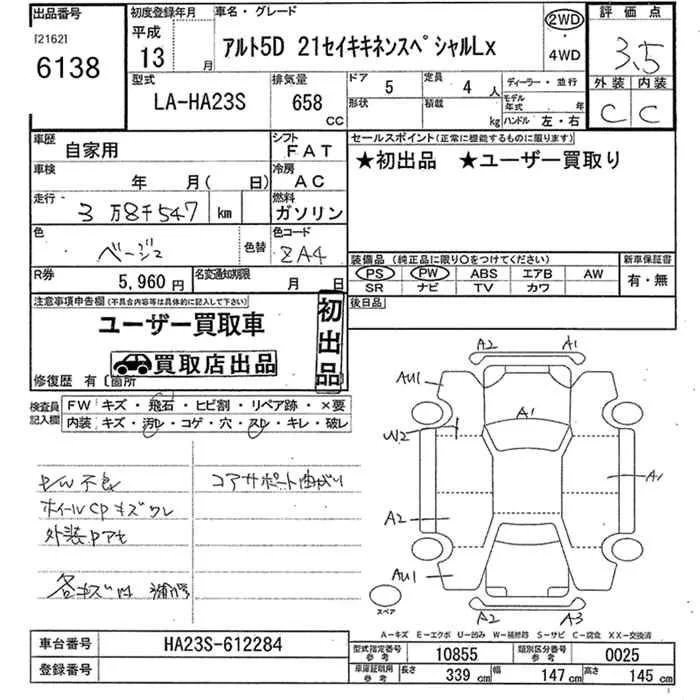 出品番号
[2162]
6138
初度登録年月
平成
13 月
車名・グレード
アルト5D 21セイキキネンスペシャルLx
2WD
・
4WD
評価点
3.5
外装 内装
C C
型式
LA-HA23S
排気量
658
CC
ドア
5
定員
4 人
形状
積載
kg
ディーラー・並行
モデル年式 年
ハンドル 左・右
車歴
自家用
シフト
FAT
車検
年 月( 日)
冷房
AC
走行
3万8千547 km
燃料
ガソリン
色
ベージュ
色替
色コード
ZA4
R券
5,960 円
名変通知期限
月 日
セールスポイント(正常に機能するものに限ります)
★初出品 ★ユーザー買取り
装備品(純正品に限り○をつけてください)
PS PW ABS エアB AW
SR ナビ TV カワ
新車保証書
有・無
注意事項申告欄(不具合内容等は具体的に記入して下さい)
ユーザー買取車
買取店出品
初出品
修復歴 有 [箇所
後日品
検査員記入欄
FW キズ・飛石・ヒビ割・リペア跡・×要
内装 キズ・汚レ・コゲ・穴・スレ・キレ・破レ
コアサポート曲がり
ホイールCPキズワレ
A2 A1
AU1
A1
W2
A1
A2
AU1
A2 A3
スペア
A-キズ E-エクボ U-凹み W-補修跡 S-サビ C-腐食 XX-交換済
車台番号
HA23S-612284
登録番号
型式指定番号
参考
10855
類別区分番号
参考
0025
車庫証取用
参考
長さ 339 cm 幅 147 cm 高さ 145 cm